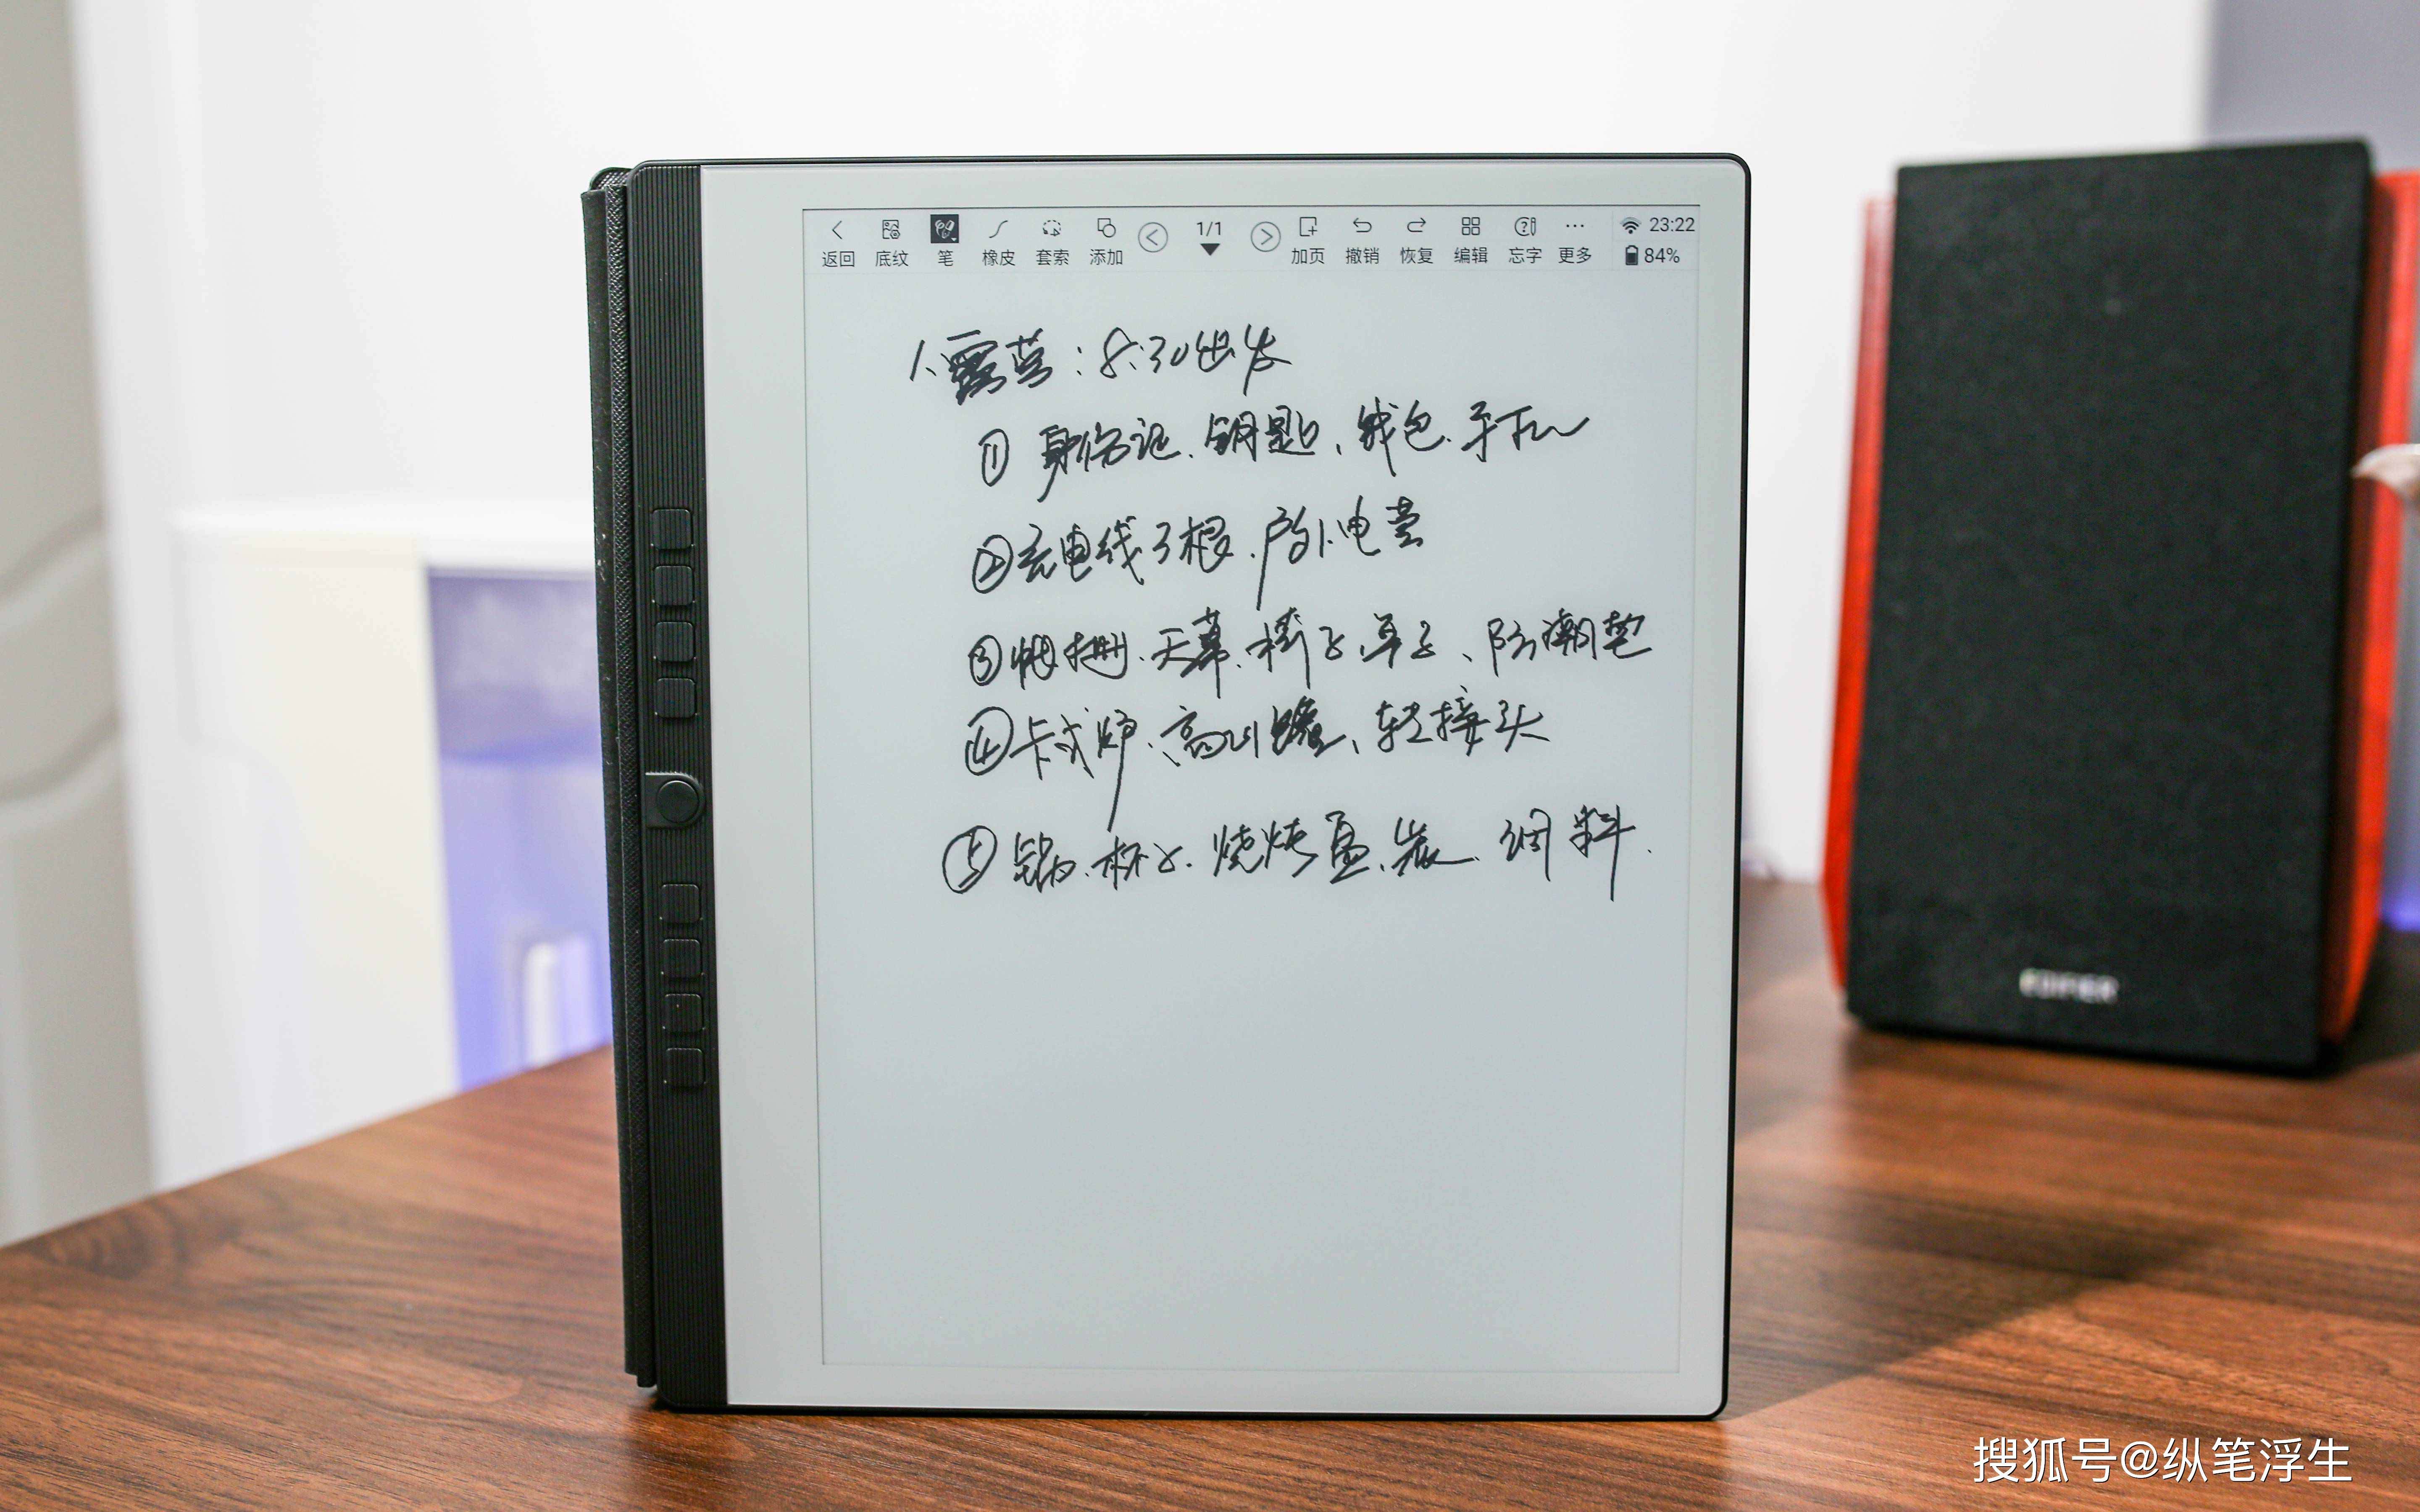 返回 底纹 笔 橡皮 套索 添加 1/1 加页 撤销 恢复 编辑 忘字 更多 23:22 84%
1、露营:8:30出发
① 身份证、钥匙、钱包、手工
② 充电线3根、户外电营
③ 帐栅、天幕、椅子、桌子、防潮垫
④ 卡式炉、高山罐、转接头
⑤ 锅、杯子、烧烤盘、炭、调料
EDIFIER
搜狐号@纵笔浮生